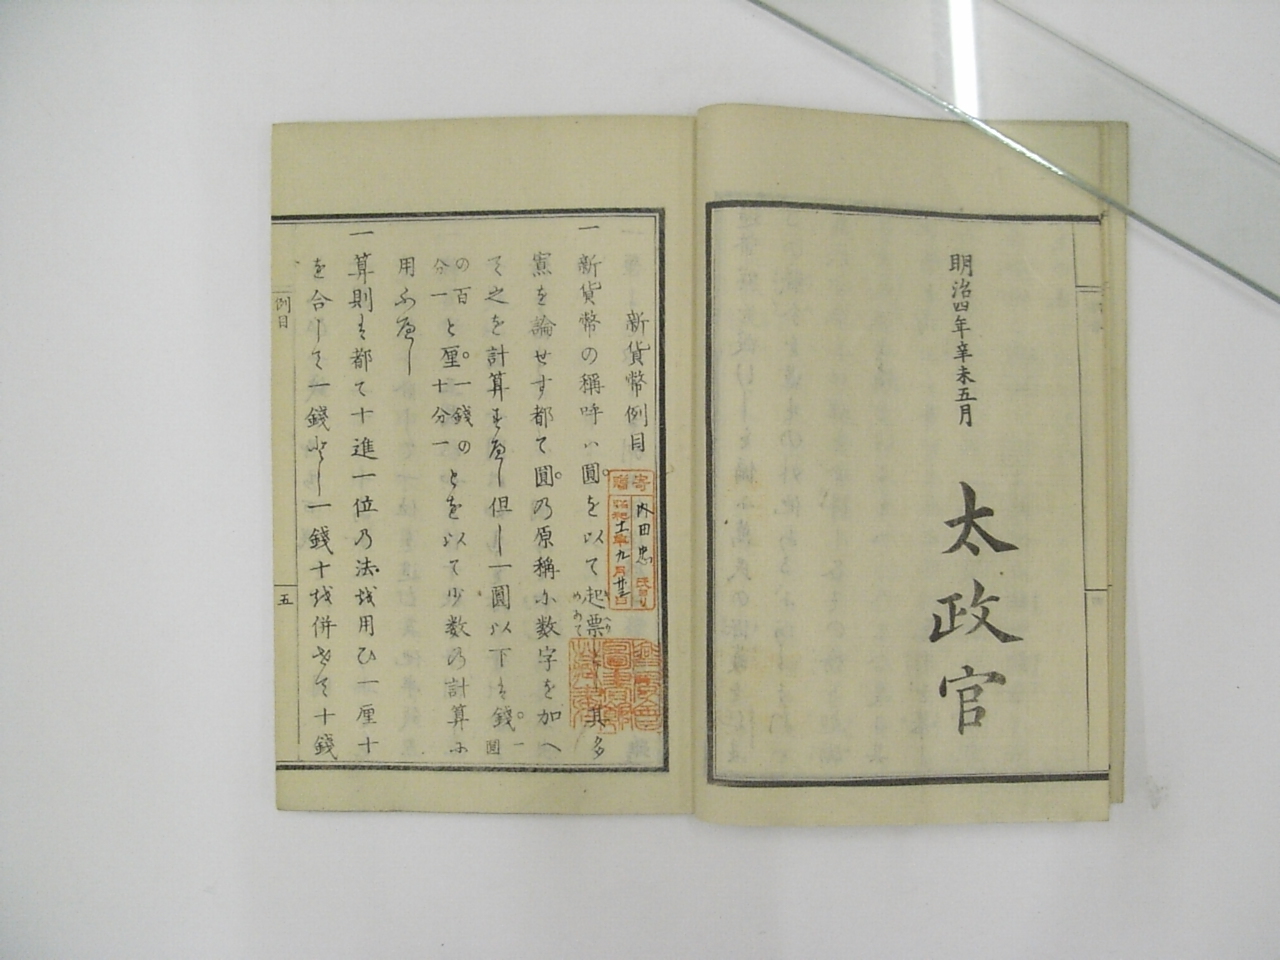 明治四年辛未五月
太政官
新貨幣例目
一新貨幣の稱呼ハ圓を以て起票とし其多
寡を論せす都て圓の原稱に数字を加へ
て之を計算すへし但し一圓以下は錢 圓一
の百分一 と厘 一錢の十分一 とを以て少数の計算に
用ふへし
一算則は都て十進一位の法を用ひ一厘十
を合して一錢とし一錢十を併せて十錢
例目
五
寄贈
内田忠
昭和十一年九月廿五日